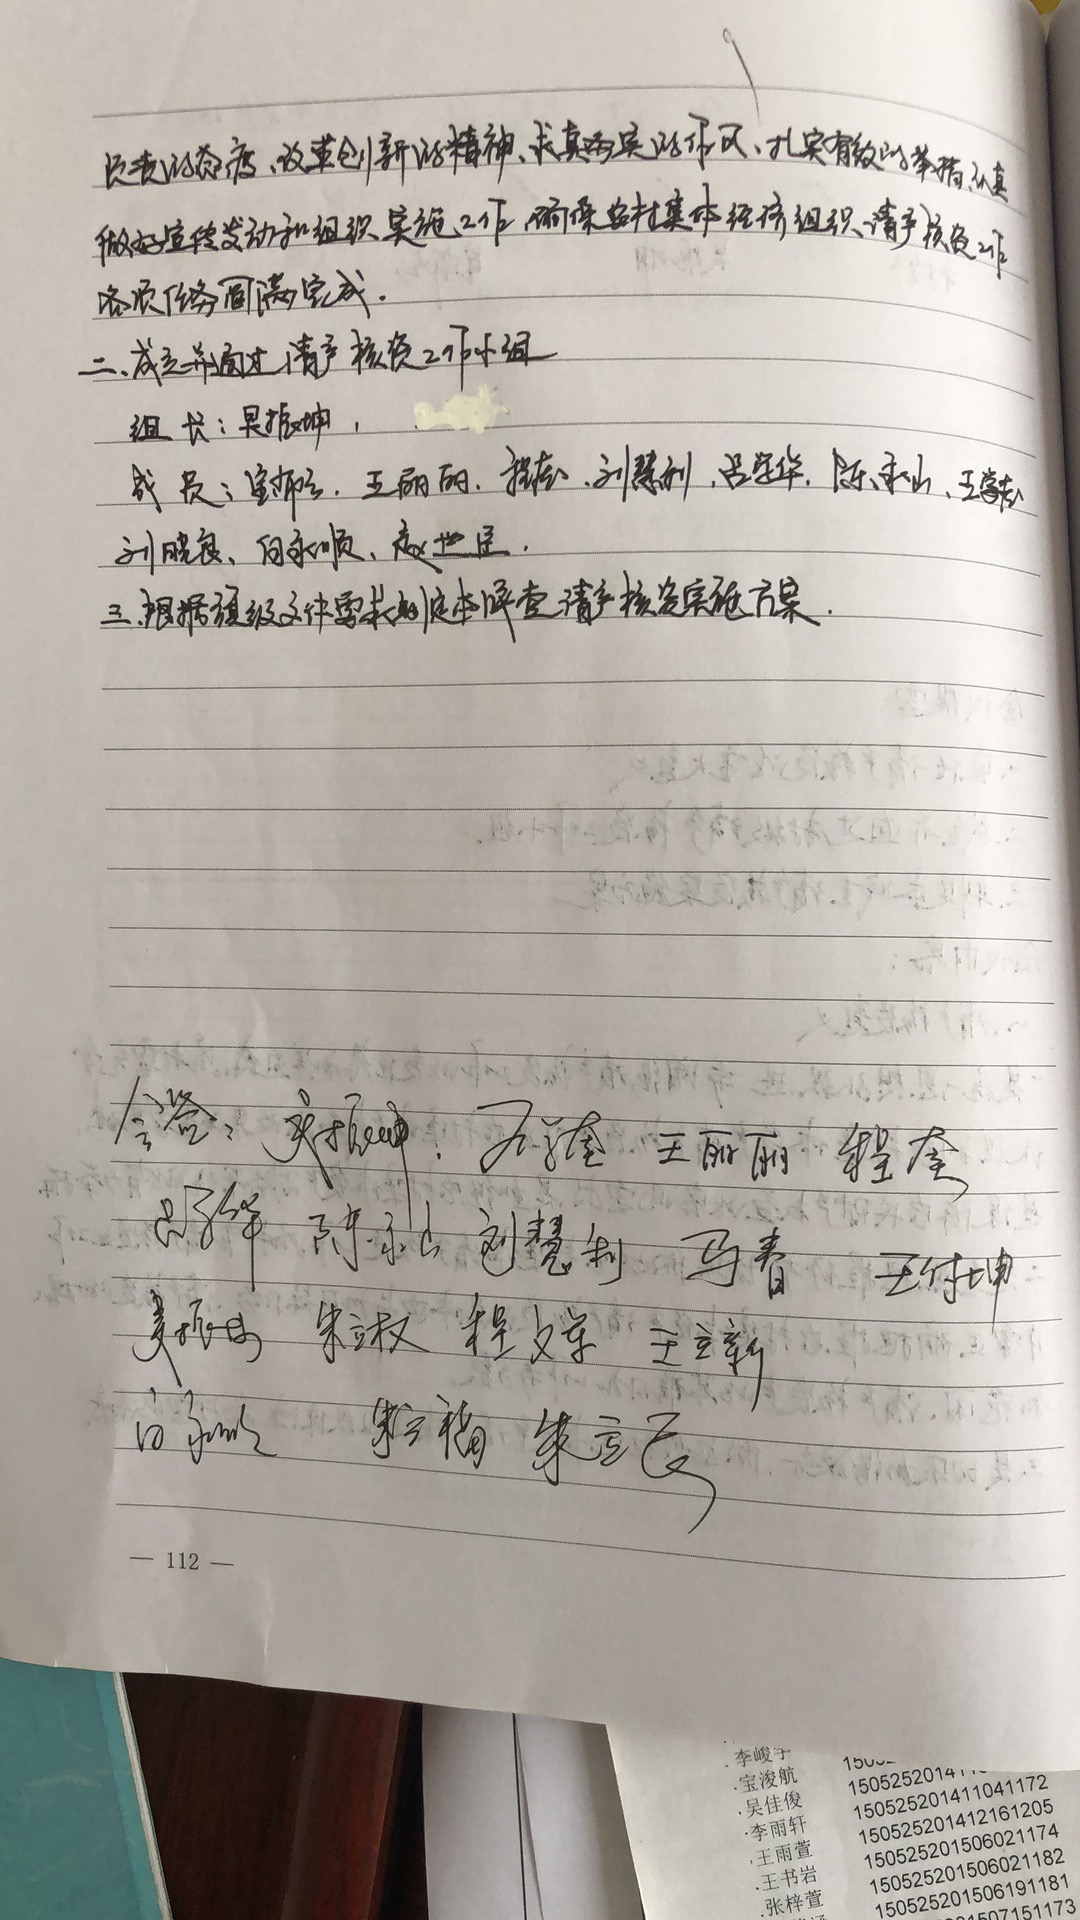 负责的态度、改革创新的精神、求真务实的作风、扎实有效的举措,认真
做好宣传发动和组织实施工作,确保农村集体经济组织清产核资工作
各项任务圆满完成.
二、成立并通过清产核资工作小组
组长:吴振坤,
成员:宝 、王丽丽、程 、刘慧利、吕学华、陈永山、王
刘晓良、白永顺、
三.根据镇级文件要求制定本嘎查清产核资实施方案.
会签: 吴振坤. 王丽丽 程奎
吕学华 陈永山 刘慧利 马春 王付坤
姜振 朱立权 程文学 王立新
白永顺 朱立福 朱立民
— 112 —
.李峻宇
.宝浚航
.吴佳俊 150525201411041172
.李雨轩 150525201412161205
.王雨萱 150525201506021174
.王书岩 150525201506021182
.张梓萱 150525201506191181